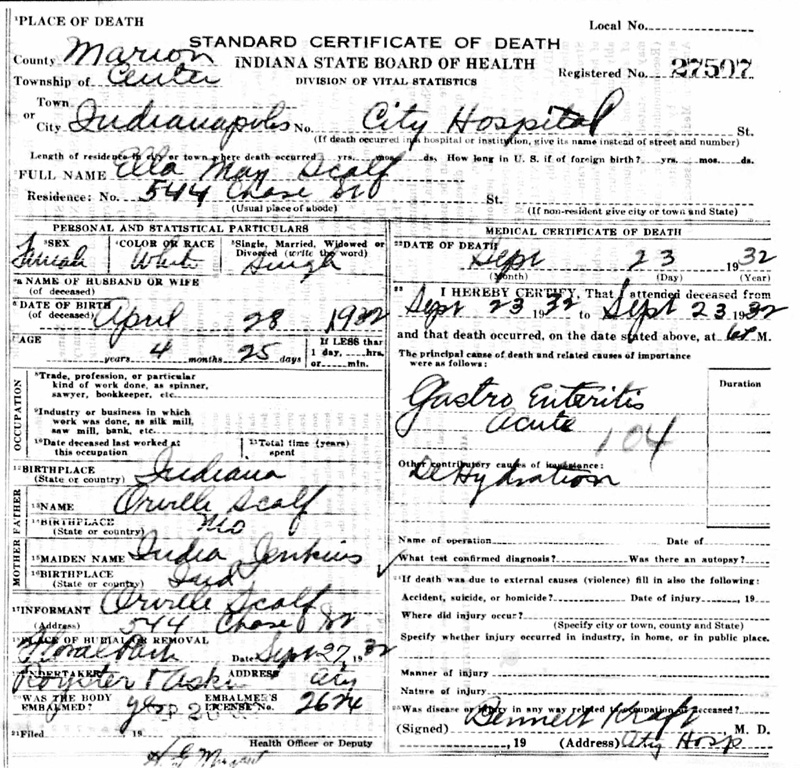 ¹PLACE OF DEATH
Local No.
STANDARD CERTIFICATE OF DEATH
County Marion
INDIANA STATE BOARD OF HEALTH
Registered No. 27507
Township of Center
DIVISION OF VITAL STATISTICS
Town
or
City Indianapolis No. City Hospital St.
(If death occurred in a hospital or institution, give its name instead of street and number)
Length of residence in city or town where death occurred yrs. mos. ds. How long in U. S. if of foreign birth? yrs. mos. ds.
FULL NAME Ella May Scalf
Residence: No. 544 Chase St St.
(Usual place of abode)
(If non-resident give city or town and State)
PERSONAL AND STATISTICAL PARTICULARS
³SEX Female
⁴COLOR OR RACE White
⁵Single, Married, Widowed or Divorced (write the word) Single
NAME OF HUSBAND OR WIFE
(of deceased)
⁶DATE OF BIRTH
(of deceased) April 28 1932
⁷AGE years 4 months 25 days
If LESS than
1 day, hrs.
or min.
OCCUPATION
⁸Trade, profession, or particular
kind of work done, as spinner,
sawyer, bookkeeper, etc.
⁹Industry or business in which
work was done, as silk mill,
saw mill, bank, etc.
¹⁰Date deceased last worked at
this occupation
¹¹Total time (years)
spent
¹²BIRTHPLACE
(State or country) Indiana
FATHER
¹³NAME Orville Scalf
¹⁴BIRTHPLACE
(State or country) Mo
MOTHER
¹⁵MAIDEN NAME India Jenkins
¹⁶BIRTHPLACE
(State or country) Ind
¹⁷INFORMANT Orville Scalf
(Address) 544 Chase St
PLACE OF BURIAL OR REMOVAL
Floral Park Date Sept 27, 1932
UNDERTAKER ADDRESS
City
WAS THE BODY
EMBALMED? yes
EMBALMER'S
LICENSE No. 2624
²¹Filed 19
Health Officer or Deputy
MEDICAL CERTIFICATE OF DEATH
²²DATE OF DEATH Sept 23 1932
(Month) (Day) (Year)
²³ I HEREBY CERTIFY, That I attended deceased from
Sept 23 1932 to Sept 23 1932
and that death occurred, on the date stated above, at M.
The principal cause of death and related causes of importance
were as follows:
Duration
Gastro Enteritis
Acute
104
Other contributory causes of importance:
DeHydration
Name of operation Date of
What test confirmed diagnosis? Was there an autopsy?
²⁴If death was due to external causes (violence) fill in also the following:
Accident, suicide, or homicide? Date of injury, 19
Where did injury occur?
(Specify city or town, county and State)
Specify whether injury occurred in industry, in home, or in public place.
Manner of injury
Nature of injury
²⁵Was disease or injury in any way related to occupation of deceased?
(Signed) Bennett Kraft M. D.
, 19 (Address) City Hosp